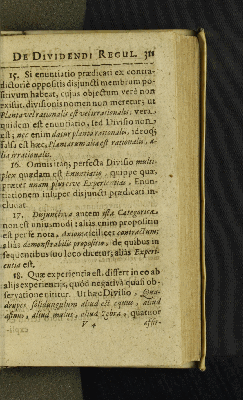 DE DIVIDENDI REGUL. 311
15. Si enuntiatio prædicati ex contra-
dictorie oppositis disjuncti membrum po-
sitivum habeat, cujus objectum verè non
existit, divisionis nomen non meretur, ut
Planta vel rationalis est vel irrationalis; vera
quidem est enuntiatio, sed Divisio non
est; nec enim datur planta rationalis, ideoq;
falsa est hæc, Plantarum alia est rationalis, a-
lia irrationalis.
16. Omnis itaq; perfecta Divisio multi-
plex quædam est Enuntiatio, quippe quæ
præter unam plurésve Experientias, Enun-
tiationem insuper disjuncti prædicati in-
cludat.
17. Disjunctiva autem ista Categorica
non est uniusmodi: alias enim propositio
est per se nota, Axioma scilicet contractum;
alias demonstrabilis propositio, de quibus in
sequentibus suo loco dicetur; alias Experi-
entia est.
18. Quæ experientia est, differt in eo ab
aliis experientiis, quòd negativà quasi ob-
servatione nititur. Ut hæc Divisio, Qua-
drupes solidungulum aliud est equus, aliud
asinus, aliud mulus, aliud Zebra, quatuor
V 4 affir-